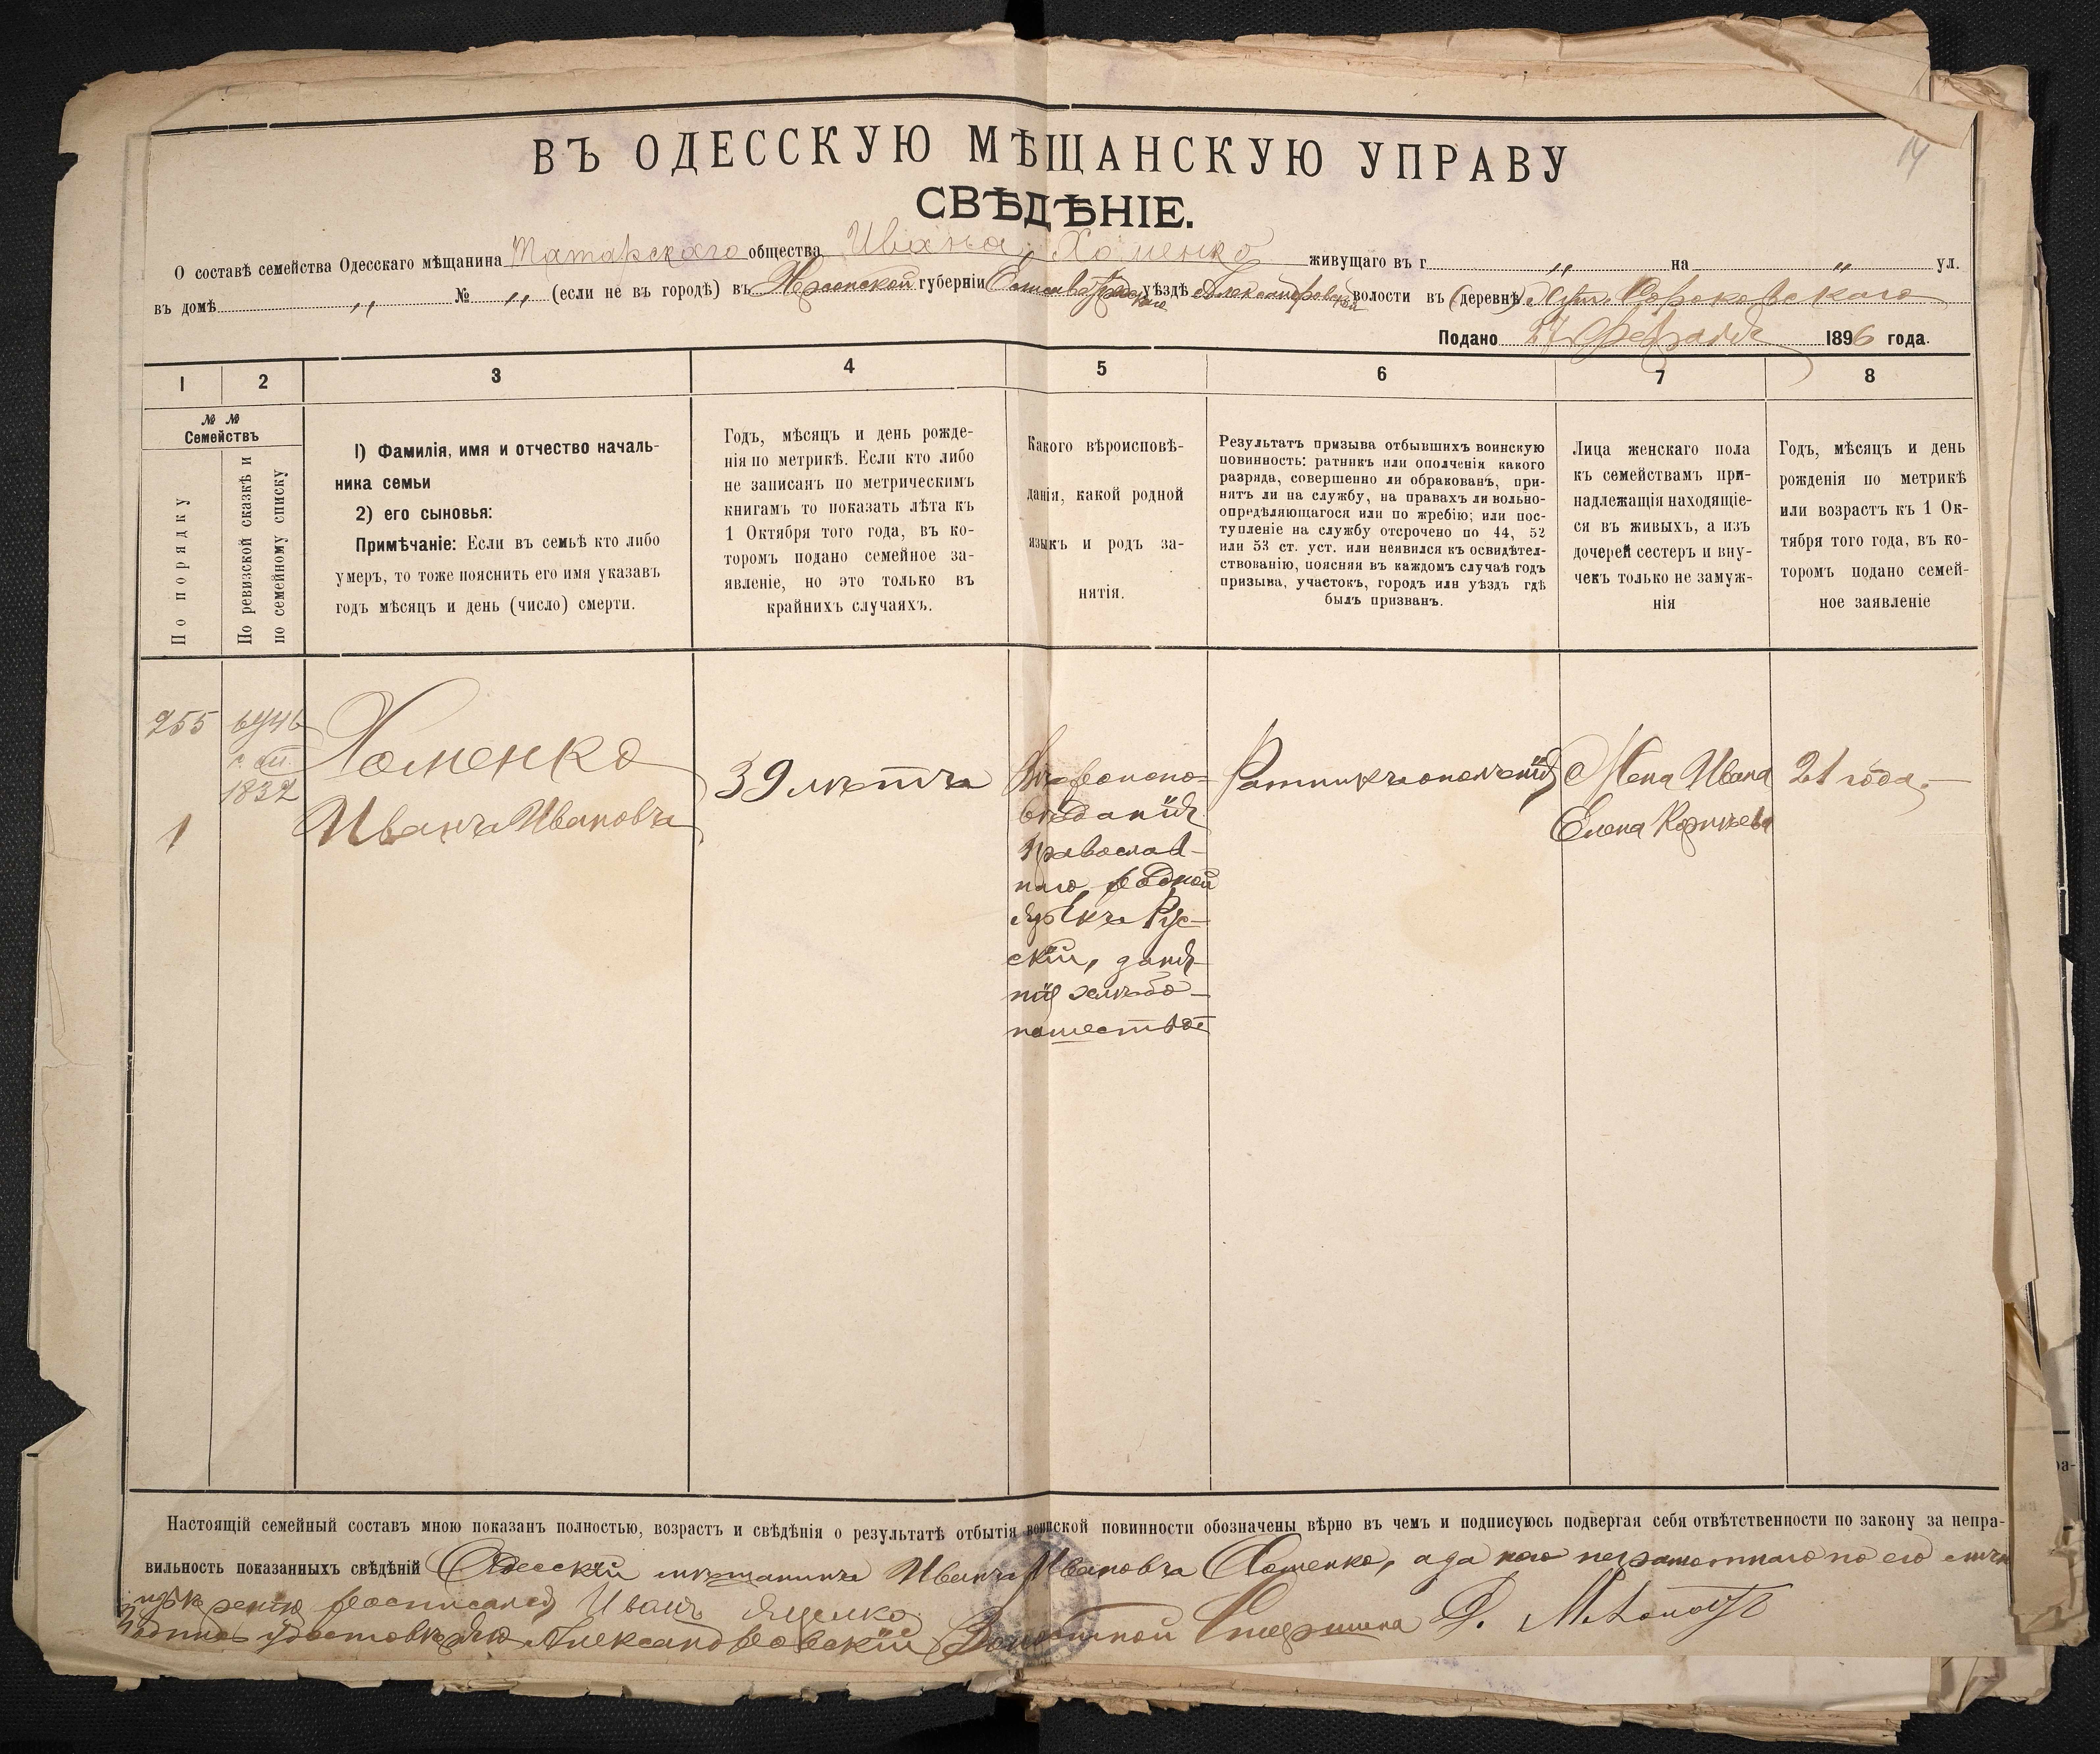 14
ВЪ ОДЕССКУЮ МѢЩАНСКУЮ УПРАВУ
СВѢДѢНІЕ.
О составѣ семейства Одесскаго мѣщанина Татарскаго общества Ивана Хоменко живущаго въ г. „ на „ ул.
въ домѣ „ № „ (если не въ городѣ) въ Херсонской губерніи Елисаветградскаго уѣздѣ Александровской волости въ (деревнѣ)
Подано 27 Февраля 1896 года.
1 2 3 4 5 6 7 8
№ №
Семействъ
По порядку
По ревизской сказкѣ и
по семейному списку
1) Фамилія, имя и отчество началь-
ника семьи
2) его сыновья:
Примѣчаніе: Если въ семьѣ кто либо
умеръ, то тоже пояснить его имя указавъ
годъ мѣсяцъ и день (число) смерти.
Годъ, мѣсяцъ и день рожде-
нія по метрикѣ. Если кто либо
не записанъ по метрическимъ
книгамъ то показать лѣта къ
1 Октября того года, въ ко-
торомъ подано семейное за-
явленіе, но это только въ
крайнихъ случаяхъ.
Какого вѣроисповѣ-
данія, какой родной
языкъ и родъ за-
нятія.
Результатъ призыва отбывшихъ воинскую
повинность: ратникъ или ополченія какого
разряда, совершенно ли обракованъ, при-
нятъ ли на службу, на правахъ ли вольно-
опредѣляющагося или по жребію; или пос-
тупленіе на службу отсрочено по 44, 52
или 53 ст. уст. или неявился къ освидѣтел-
ствованію, поясняя въ каждомъ случаѣ годъ
призыва, участокъ, городъ или уѣздъ гдѣ
былъ призванъ.
Лица женскаго пола
къ семействамъ при-
надлежащія находящіе-
ся въ живыхъ, а изъ
дочерей сестеръ и вну-
чекъ только не замуж-
нія
Годъ, мѣсяцъ и день
рожденія по метрикѣ
или возрастъ къ 1 Ок-
тября того года, въ ко-
торомъ подано семей-
ное заявленіе
255
1832
1
Хоменко
Иванъ Ивановъ
39 лѣтъ
Вѣроиспо-
вѣданія
Православ-
наго, родной
языкъ Рус-
скій, заня-
тіе хлѣбо-
пашество
Ратникъ ополченія
Жена Ивана
Елена Корнѣева
21 года.
Настоящій семейный составъ мною показанъ полностью, возрастъ и свѣдѣнія о результатѣ отбытія воинской повинности обозначены вѣрно въ чемъ и подписуюсь подвергая себя отвѣтственности по закону за непра-
вильность показанныхъ свѣдѣній Одесскій мѣщанинъ Иванъ Ивановъ Хоменко, а за него неграмотнаго по его
росписался Иванъ
Подпись удостовѣряю Александровскій Волостной Старшина